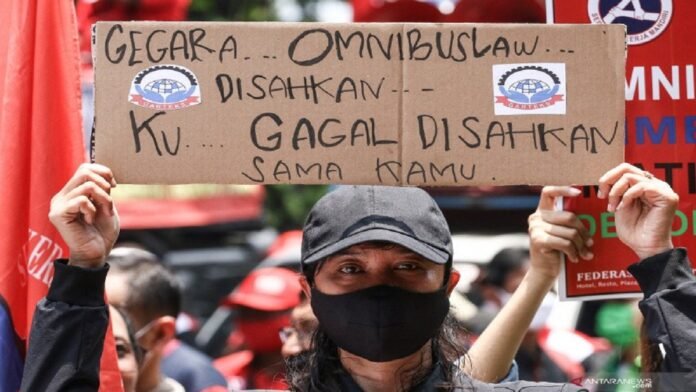 GEGARA... OMNIBUSLAW...
DISAHKAN...-
KU.... GAGAL DISAHKAN
SAMA KAMU.
GARTEKS
GARTEKS
MNI
FEDERAS
Hotel, Resto, Plaza
ANTARANEWS.com